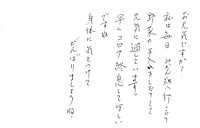 お元気ですか?
私は毎日、散歩へ行ったり
野菜の手入れをしたりして
元気に過しています。
早くコロナ終息してほしい
ですね
身体に気をつけて
がんばりましょうね!